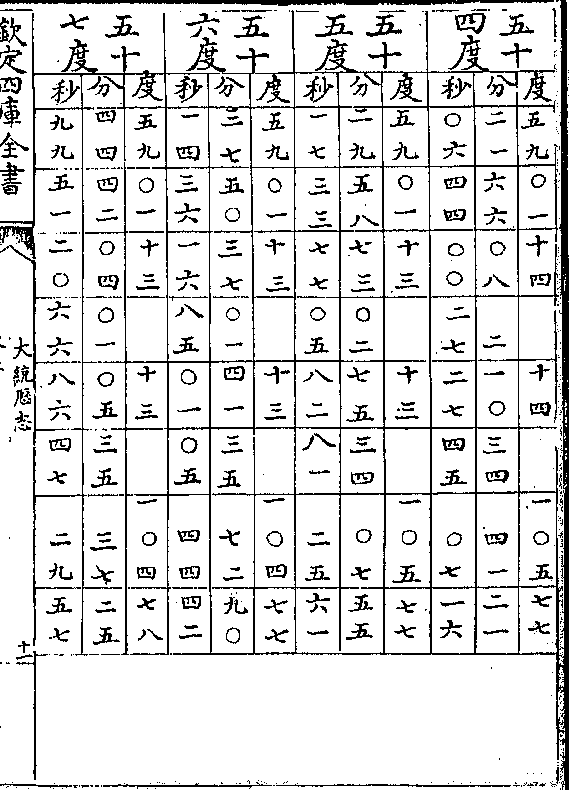 五十四度
度 五九 〇一 十四 十四 一〇五 七七
分 二一 六六 〇八 二 一〇 三四 四一 二一
秒 〇六 四四 〇〇 二七 二七 四五 〇七 一六
五十五度
度 五九 〇一 十三 十三 一〇五 七七
分 二九 五八 七三 〇二 七五 三四 〇七 五五
秒 一七 三三 七七 〇五 八二 八一 二五 六一
五十六度
度 五九 〇一 十三 十三 一〇四 七七
分 三七 五〇 三七 〇一 四一 三五 七二 九〇
秒 一四 三六 一六 八五 〇一 〇五 四四 四二
五十七度
度 五九 〇一 十三 十三 一〇四 七八
分 四四 四二 〇四 〇一 〇五 三五 三七 二五
秒 九九 五一 二〇 六六 八六 四七 二九 五七
欽定四庫全書
大統曆志
十一